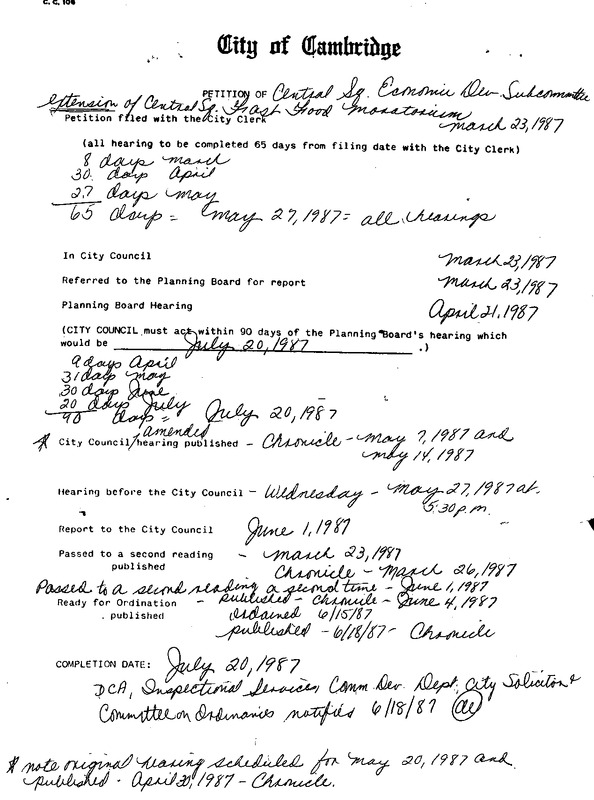 C. C. 106
City of Cambridge
PETITION OF Central Sq. Economic Dev. Subcommittee
extension of Central Sq. Fast Food Moratorium
Petition filed with the City Clerk March 23, 1987
(all hearing to be completed 65 days from filing date with the City Clerk)
8 days March
30 days April
27 days May
65 days = May 27, 1987 = all hearings
In City Council March 23, 1987
Referred to the Planning Board for report March 23, 1987
Planning Board Hearing April 21, 1987
(CITY COUNCIL must act within 90 days of the Planning Board's hearing which
would be July 20, 1987 .)
9 days April
31 days May
30 days June
20 days July
90 days = July 20, 1987
amended
* City Council/hearing published - Chronicle - May 7, 1987 and
May 14, 1987
Hearing before the City Council - Wednesday - May 27, 1987 at
5:30 p.m.
Report to the City Council June 1, 1987
Passed to a second reading - March 23, 1987
published Chronicle - March 26, 1987
Passed to a second reading a second time - June 1, 1987
Ready for Ordination - published - Chronicle - June 4, 1987
. published ordained 6/15/87
published - 6/18/87 - Chronicle
COMPLETION DATE: July 20, 1987
DCA, Inspectional Services, Comm. Dev. Dept, City Solicitor &
Committee on Ordinances notified 6/18/87
* note original hearing scheduled for May 20, 1987 and
published - April 30, 1987 - Chronicle.